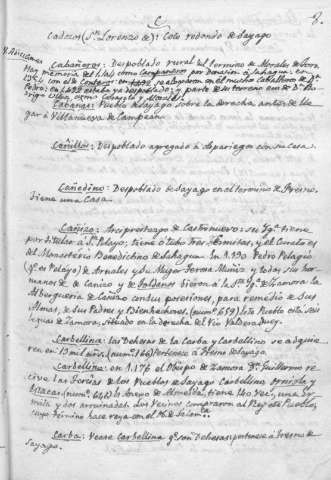 C
8.
Cadozos (Sn. Lorenzo de): Coto redondo de Sayago
Cabañeros: Despoblado rural del término de Morales de Toro.
Hay memoria del
por donación a Sahagún: en
Pedro: en 1492 estaba ya despoblado; y parte de su terreno era de Dn.
Cabañas: Pueblo de Sayago sobre la derecha, antes de lle
gar á Villanueva de Campeán
Cañillo: Despoblado agregado á Aspariegos con su Casa.
Cañedino: Despoblado de Sayago en el término de Fresno,
tiene una Casa.
Cañizo: Arciprestazgo de Castronuevo: su Yga. tiene
por titular a Sn. Pelayo, tiene ó tubo tres Ermitas, y el Curato es
del Monasterio Benedictino de Sahagun. En 1.190 Pedro Pelagio
(ó Pelayo) de Arnales y su Muger Teresa Muñiz y todos sus her
manos de Cañizo y de dieron á la Sta. Yga. de Zamora la
Alberguería de Cañizo con sus posesiones, para remedio de sus
Almas, de sus Padres y Bienhechores. (numº 659) Este Pueblo está seis
leguas de Zamora, situado en la derecha del río Valderaduey.
Carbellina: las Dehesas de la Carba y Cardellino se adquie
ren en 13 mil mrs. (numº 166) Pertenence á Fresno de Sayago
Carbellina: en 1.176 el Obispo de Zamora Dn. Guillermo re
cibe las Tercias de los Pueblos de Sayago Carbellino,
(numº 646) es Anejo de Almeida, tiene 140 vecs., una Er
mita y dos arruinadas. Los Vecinos compraron al Rey este Pueblo,
cuyo término hace raya con el Pº de Salamca.
Carba: Vease Carbellina qe. son Dehesas; pertenece á Fresno de
Sayago.